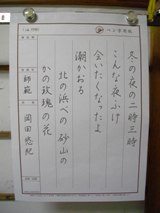 ペン字用紙
冬の夜の二時三時
こんな夜ふけ
会いたくなったよ
潮かおる
北の浜べの砂山の
かの玫瑰の花
師範
岡田悠紀